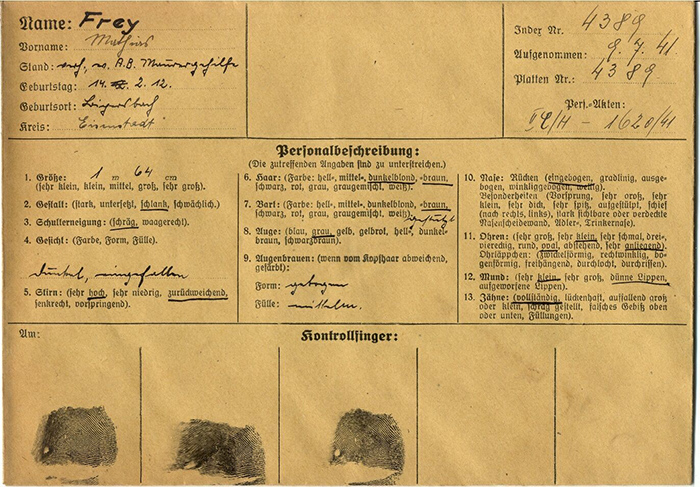 Name: Frey
Vorname: Mathias
Stand: verh, w. A.B. Maurergehilfe
Geburtstag: 14. 2. 12.
Geburtsort:
Kreis: Eisenstadt
Index Nr. 4389
Aufgenommen: 9. 7. 41
Platten Nr.: 4389
Pers.-Akten:
II C/H - 1620/41
Personalbeschreibung:
(Die zutreffenden Angaben sind zu unterstreichen.)
1. Größe: 1 m 64 cm
(sehr klein, klein, mittel, groß, sehr groß).
2. Gestalt: (stark, untersetzt, schlank, schwächlich.)
3. Schulterneigung: (schräg, waagerecht.)
4. Gesicht: (Farbe, Form, Fülle).
dunkel, eingefallen
5. Stirn: (sehr hoch, sehr niedrig, zurückweichend,
senkrecht, vorspringend).
6. Haar: (Farbe: hell-, mittel-, dunkelblond, -braun,
schwarz, rot, grau, graugemischt, weiß).
7. Bart: (Farbe: hell-, mittel- dunkelblond, -braun,
schwarz, rot, grau, graugemischt, weiß). gestutzt
8. Auge: (blau, grau, gelb, gelbrot, hell-, dunkel-
braun, schwarzbraun).
9. Augenbrauen: (wenn vom Kopfhaar abweichend,
gefärbt):
Form: gebogen
Fülle: mittelm.
10. Nase: Rücken (eingebogen, gradlinig, ausge-
bogen, winkliggebogen, wellig).
Besonderheiten (Vorsprung, sehr groß, sehr
klein, sehr dick, sehr spitz, aufgestülpt, schief
(nach rechts, links), stark sichtbare oder verdeckte
Nasenscheidewand, Adler-, Trinkernase).
11. Ohren: (sehr groß, sehr klein, sehr schmal, drei-,
viereckig, rund, oval, abstehend, sehr anliegend):
Ohrläppchen: (zwickelförmig, rechtwinklig, bo-
genförmig, freihängend, durchlocht, durchrissen).
12. Mund: (sehr klein, sehr groß, dünne Lippen,
aufgeworfene Lippen).
13. Zähne: (vollständig, lückenhaft, auffallend groß
oder klein, schräg gestellt, falsches Gebiß oben
oder unten, Füllungen).
Am:
Kontrollfinger: